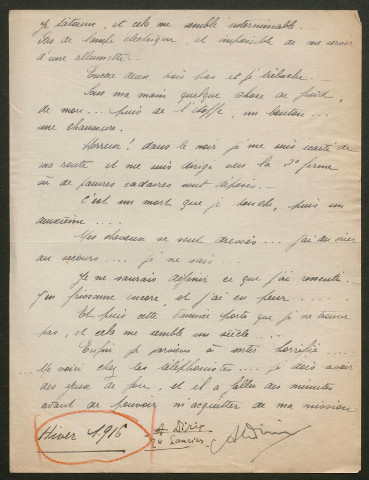 Je tatonne, et cela me semble interminable. -
Pas de lampe electrique, et impossible de me servir
d'une allumette. -
Encore deux trois pas et je trebuche. -
Sous ma main quelque chose de froid,
de mou.... puis de l'étoffe, un bouton...
une chaussure.
Horreur! dans le noir je me suis écarté de
ma route et me suis dirigé vers la 2e ferme
où de pauvres cadavres sont déposés. -
C'est un mort que je touche, puis un
deuxième ....
Mes cheveux se sont dressés ... j'ai du crier
au secours.... je ne sais ...
Je ne saurais définir ce que j'ai ressenti
J'en frissonne encore, et j'ai eu peur ....
Et puis cette damnée porte que je ne trouve
pas, et cela me semble un siècle ...
Enfin je parviens à sortir horrifié ....
Me voici chez les téléphonistes .... je dois avoir
des yeux de fou, et il a fallu des minutes
avant de pouvoir m'acquitter de ma mission
Hiver 1916